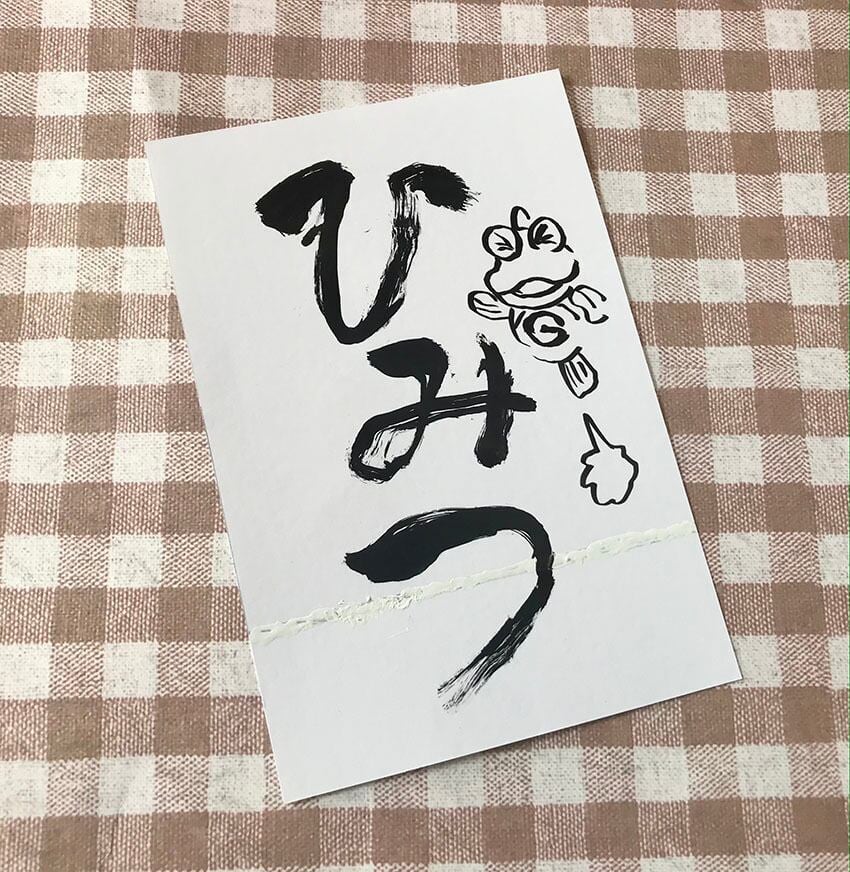 ひみつ
G